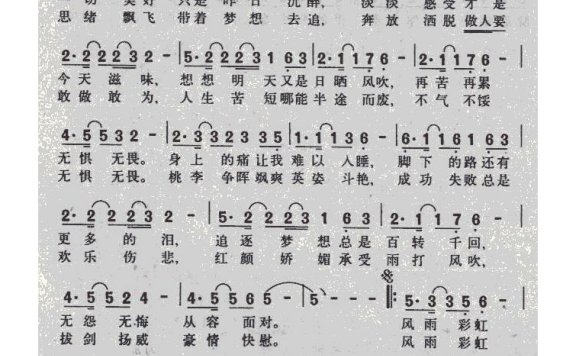 切 美好 只是 昨日 沉醉, 淡淡 感受 才是
思绪 飘飞 带着 梦想 去追, 奔放 洒脱 做人要
2·2 2 2 3 2 - | 5·2 2 2 3 2 1 | 2·1 1 7 6 - | 2·1 1 7 6 -
今天 滋味, 想想 明天又是日晒 风吹, 再苦 再累
敢做 敢为, 人生 苦短哪能半途 而废, 不气 不馁
4·5 5 5 3 2 - | 2·3 3 2 3 3 5 | 1·1 1 3 6 - | 6·1 6 1 6 3
无惧 无畏。 身上 的痛让我 难以 人睡, 脚下 的路还有
无惧 无畏。 桃李 争晖飒爽 英姿 斗艳, 成功 失败总是
2·2 2 2 3 2 - | 5·2 2 2 3 1 6 3 | 2·1 1 7 6 -
更多 的 泪, 追逐 梦想总是 百转 千回,
欢乐 伤悲, 红颜 娇媚承受 雨打 风吹,
4·5 5 2 4 5 | 5 - - - | 5 - - | 5·3 3 5 6 -
无怨 无悔 从容 面对。 风雨 彩虹
拔剑 扬威 豪情 快慰。 风雨 彩虹